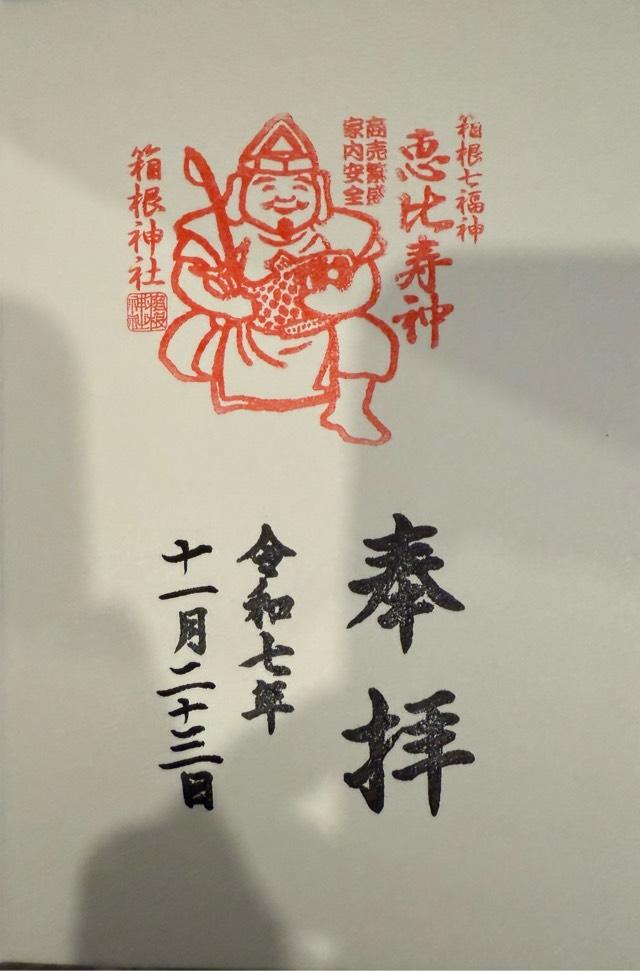 箱根七福神
恵比寿神
商売繁盛
家内安全
箱根神社
箱根
神社
奉拝
令和七年
十一月二十三日